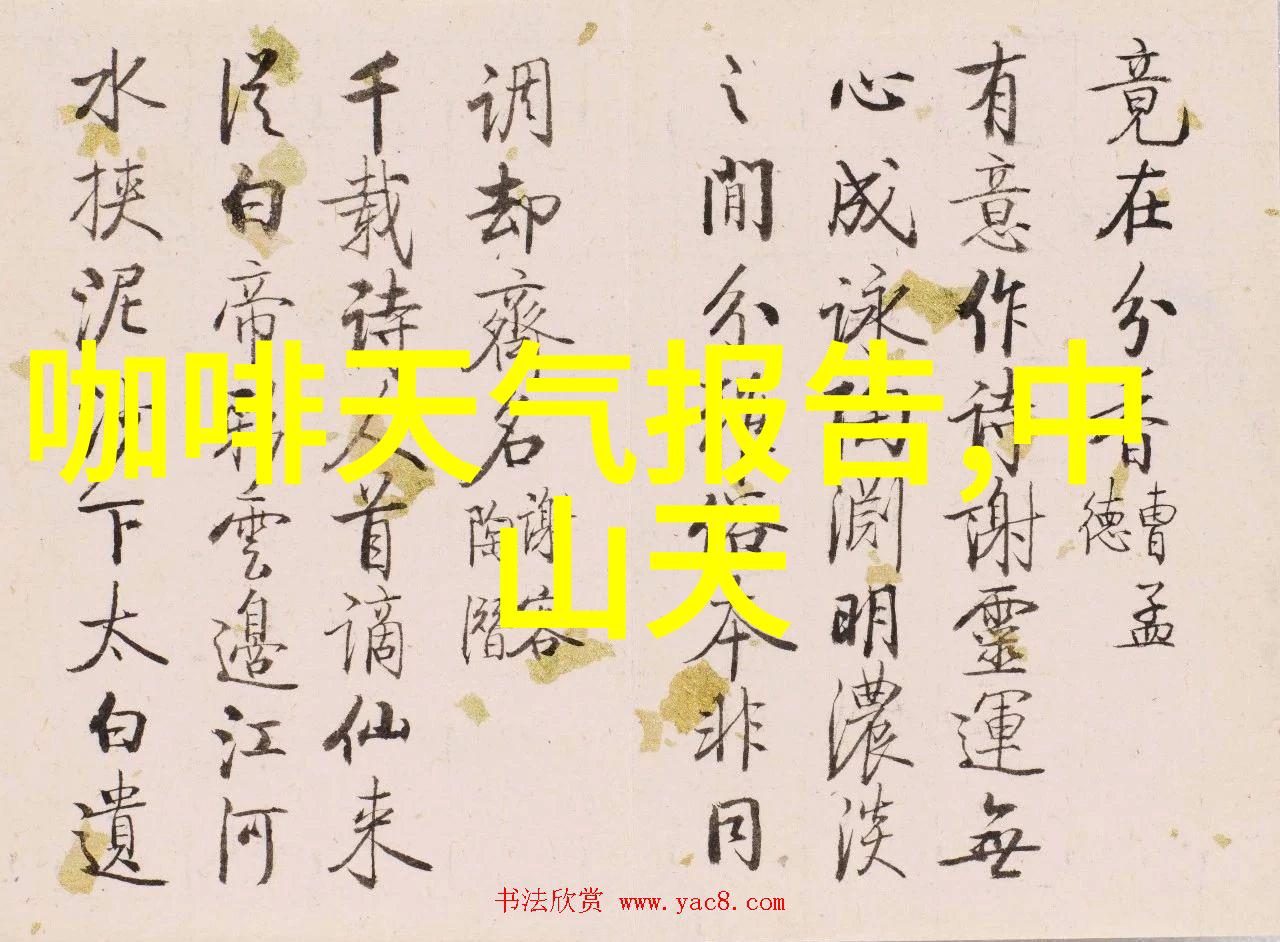 竟在分香曹孟德
有意作诗謝靈運無
心成詠陶淵明濃淡
之間分俗本非同
调却齊名謝客陶潛
千載诗人首谪仙来
從白帝雲邊江河
水挾泥下太白遺
咖啡天气报告,中
山天
书法欣赏 www.yac8.com